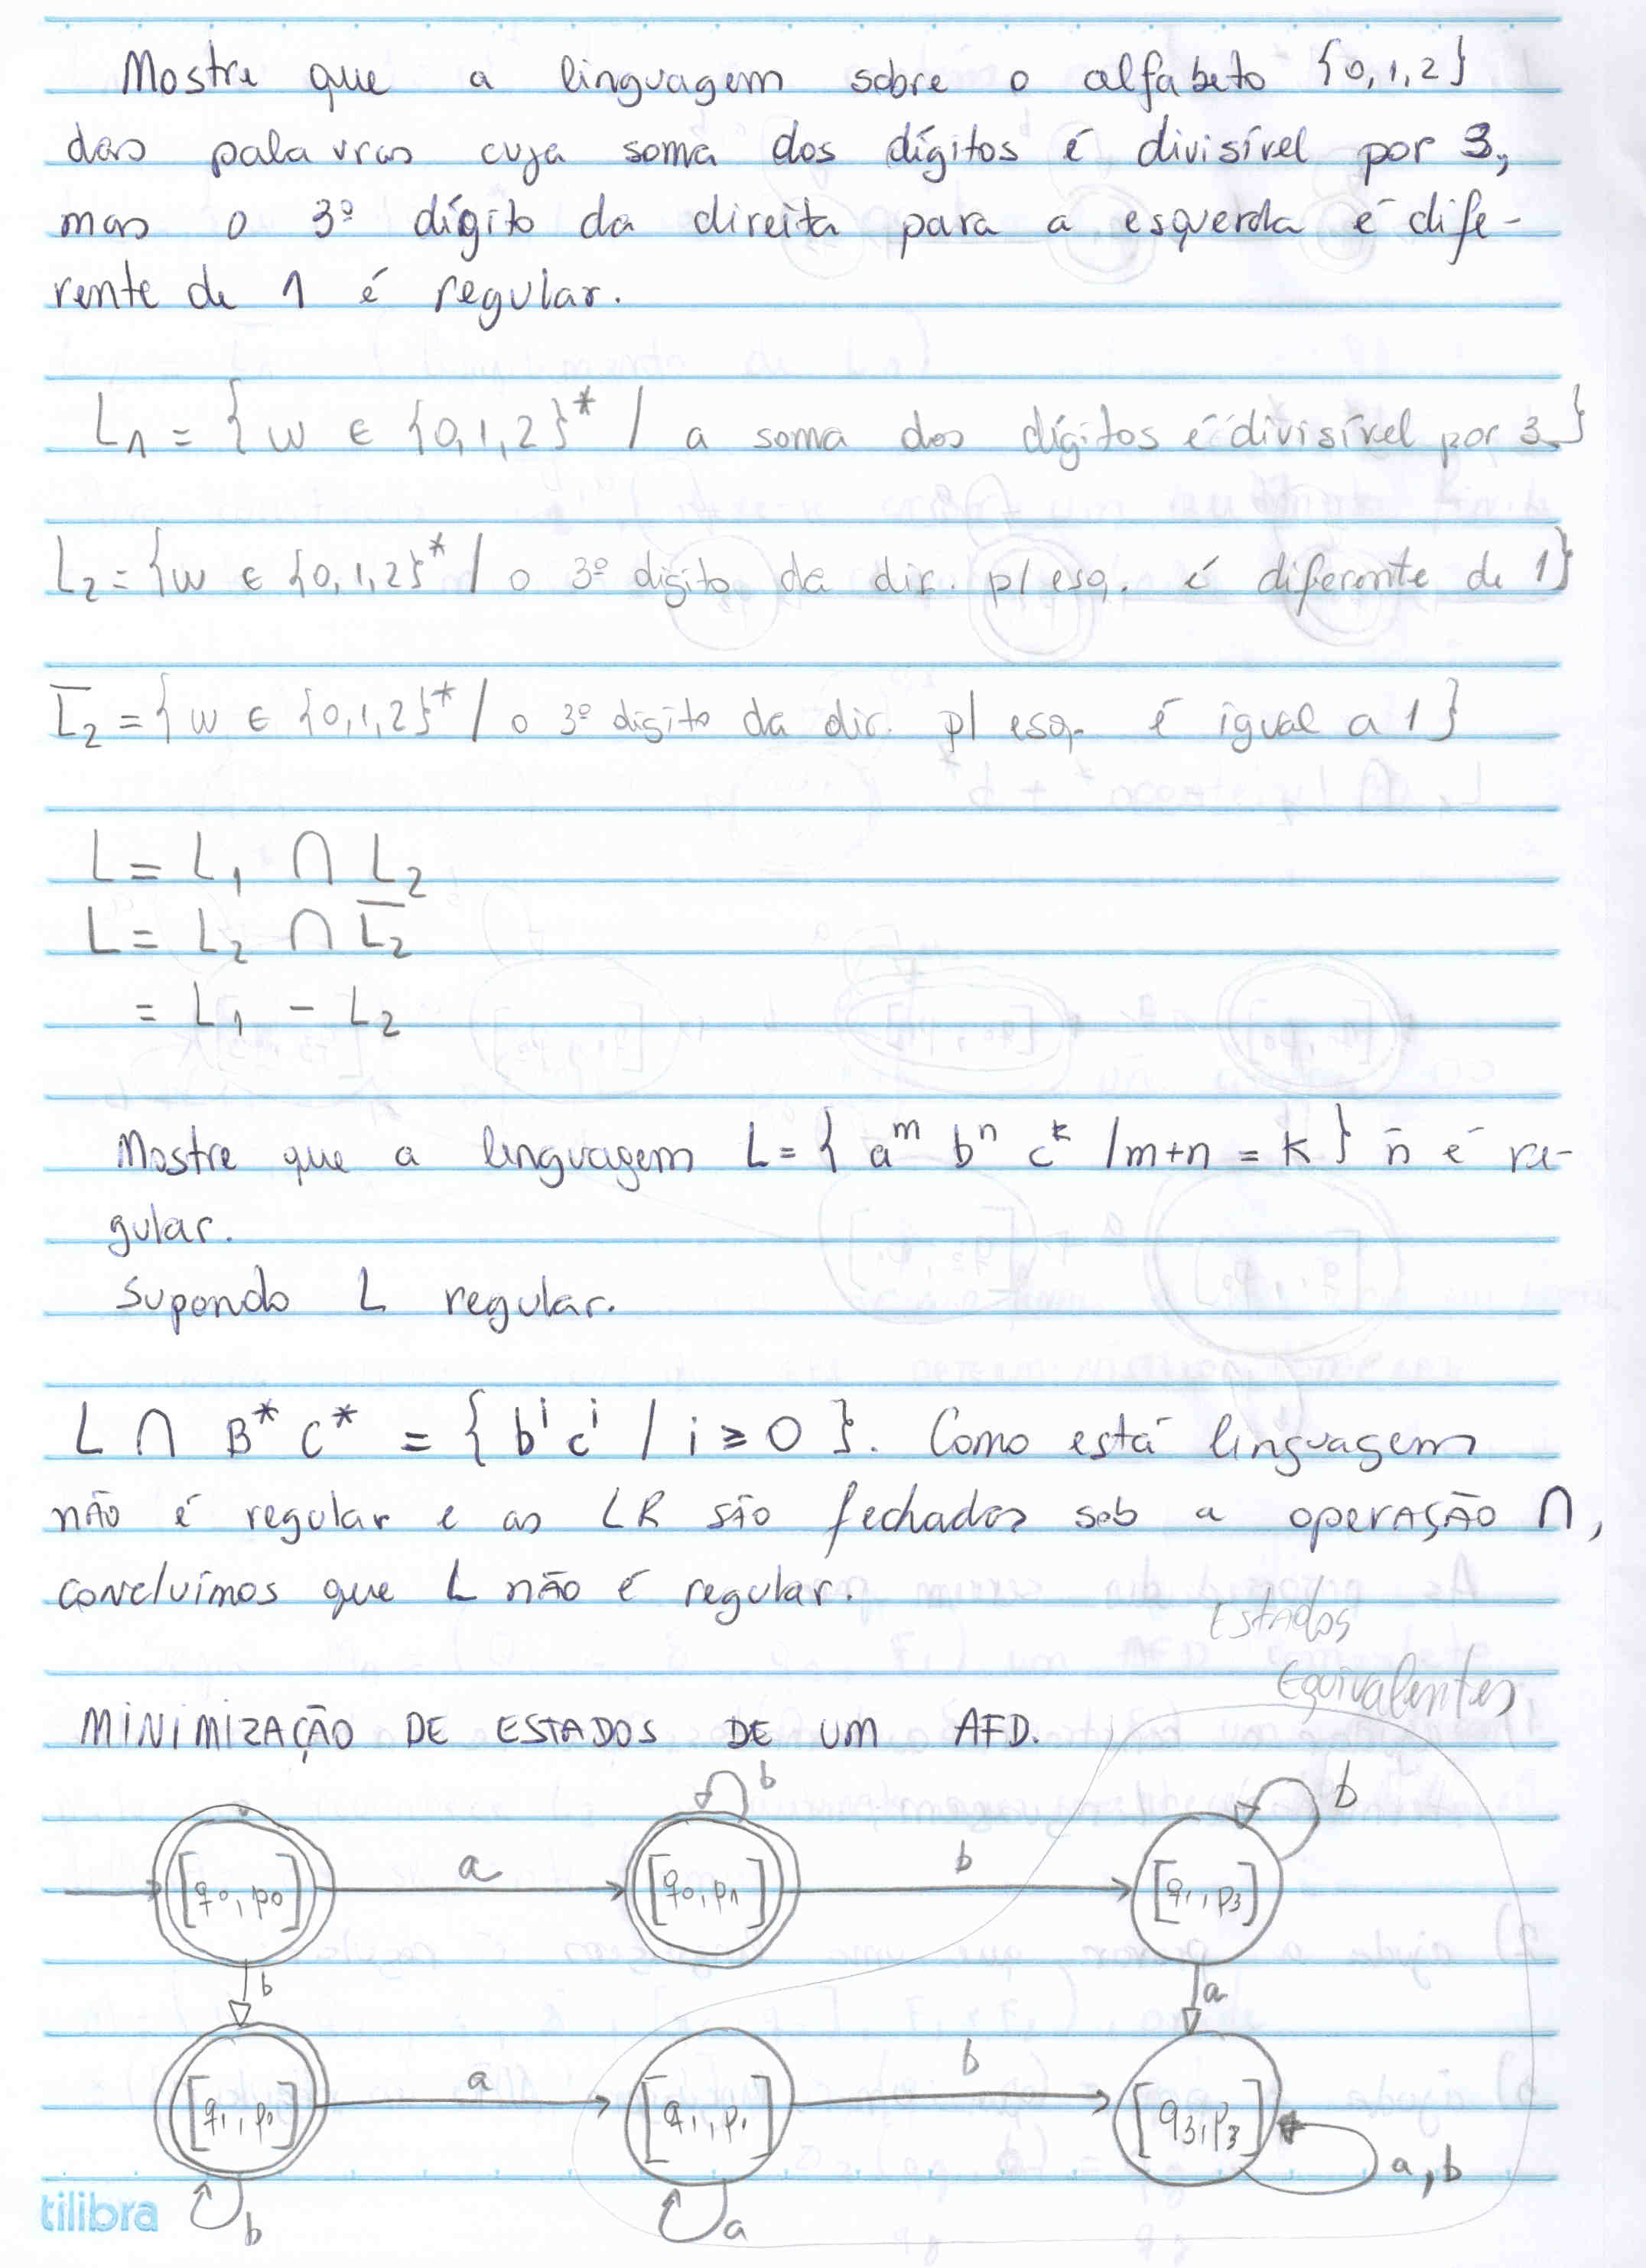 Mostre que a linguagem sobre o alfabeto {0,1,2}
das palavras cuja soma dos dígitos é divisível por 3,
mas o 3º dígito da direita para a esquerda é dife-
rente de 1 é regular.
L1 = {w ∈ {0,1,2}* / a soma dos dígitos é divisível por 3}
L2 = {w ∈ {0,1,2}* / o 3º digito da dir. p/ esq. é diferente de 1}
L̅2 = {w ∈ {0,1,2}* / o 3º digito da dir. p/ esq. é igual a 1}
L = L1 ∩ L2
L = L2 ∩ L̅2
= L1 - L2
Mostre que a linguagem L = { a^m b^n c^k / m+n = k } ñ é re-
gular.
Supondo L regular.
L ∩ B* C* = { b^i c^i / i ≥ 0 }. Como está linguagem
não é regular e as LR são fechadas sob a operação ∩,
concluímos que L não é regular.
Estados
Equivalentes
MINIMIZAÇÃO DE ESTADOS DE UM AFD.
b
b
[q0, p0] a [q0, p1] b [q1, p3]
b
a
[q1, p0] a [q1, p1] b [q3, p3]
a, b
b
a
tilibra